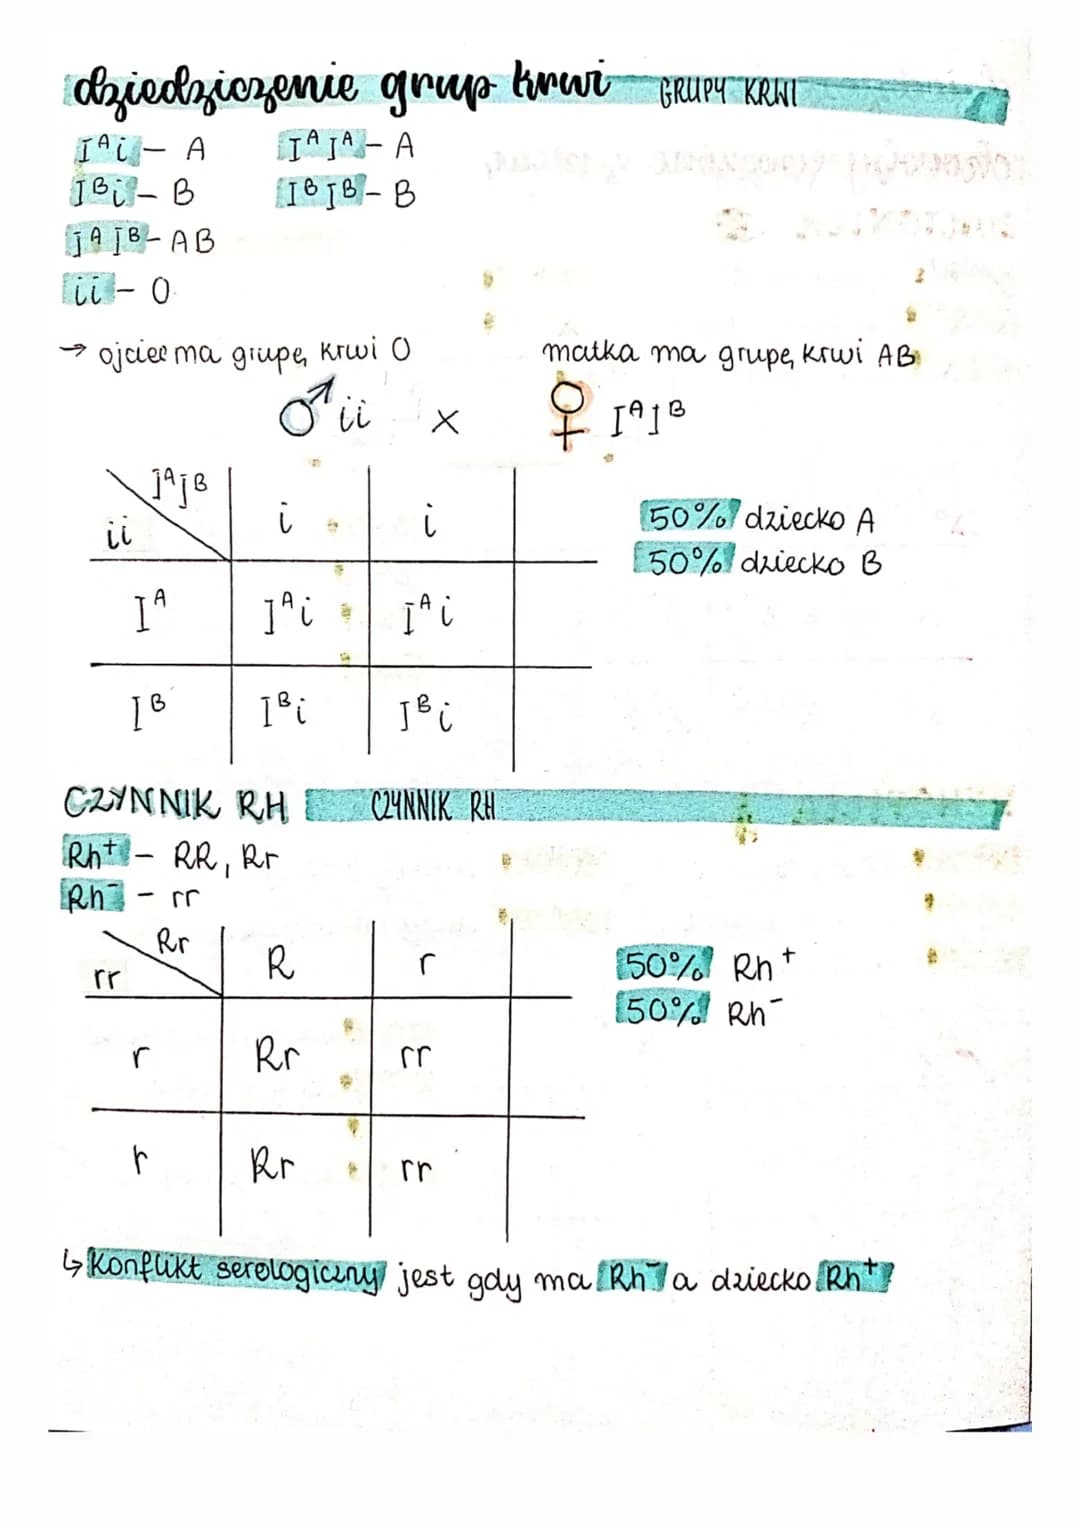 dziedziczenie grup krwi GRUPY KRWI
Iᴬi – A IᴬIᴬ – A
Iᴮi – B IᴮIᴮ – B
IᴬIᴮ – AB
ii – O
→ ojciec ma grupę krwi O matka ma grupę krwi AB
♂ ii x ♀ IᴬIᴮ
IᴬIᴮ
ii i i
50% dziecko A
50% dziecko B
Iᴬ Iᴬi Iᴬi
Iᴮ Iᴮi Iᴮi
CZYNNIK RH CZYNNIK RH
Rh⁺ – RR, Rr
Rh⁻ – rr
Rr
rr R r
50% Rh⁺
50% Rh⁻
r Rr rr
r Rr rr
↳ Konflikt serologiczny jest gdy ma Rh⁻ a dziecko Rh⁺